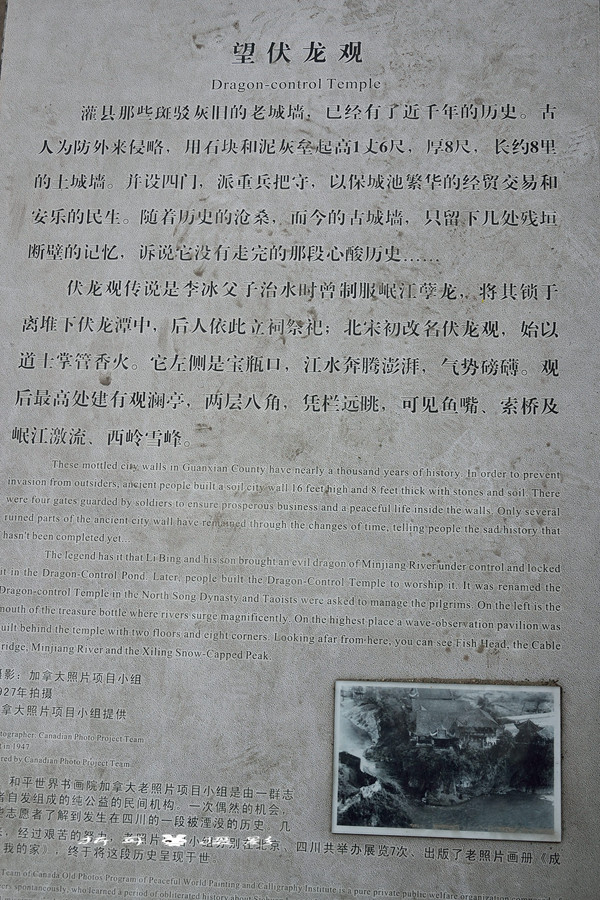 望伏龙观
Dragon-control Temple
灌县那些斑驳灰旧的老城墙，已经有了近千年的历史。古
人为防外来侵略，用石块和泥灰垒起高1丈6尺，厚8尺，长约8里
的土城墙。并设四门，派重兵把守，以保城池繁华的经贸交易和
安乐的民生。随着历史的沧桑，而今的古城墙，只留下几处残垣
断壁的记忆，诉说它没有走完的那段心酸历史……
伏龙观传说是李冰父子治水时曾制服岷江孽龙，将其锁于
离堆下伏龙潭中，后人依此立祠祭祀；北宋初改名伏龙观，始以
道士掌管香火。它左侧是宝瓶口，江水奔腾澎湃，气势磅礴。观
后最高处建有观澜亭，两层八角，凭栏远眺，可见鱼嘴、索桥及
岷江激流、西岭雪峰。
These mottled city walls in Guanxian County have nearly a thousand years of history. In order to prevent
invasion from outsiders, ancient people built a soil city wall 16 feet high and 8 feet thick with stones and soil. There
were four gates guarded by soldiers to ensure prosperous business and a peaceful life inside the walls. Only several
ruined parts of the ancient city wall have remained through the changes of time, telling people the sad history that
hasn't been completed yet...
The legend has it that Li Bing and his son brought an evil dragon of Minjiang River under control and locked
it in the Dragon-Control Pond. Later, people built the Dragon-Control Temple to worship it. It was renamed the
Dragon-control Temple in the North Song Dynasty and Taoists were asked to manage the pilgrims. On the left is the
mouth of the treasure bottle where rivers surge magnificently. On the highest place a wave-observation pavilion was
uilt behind the temple with two floors and eight corners. Looking afar from here, you can see Fish Head, the Cable
ridge, Minjiang River and the Xiling Snow-Capped Peak.
摄影：加拿大照片项目小组
927年拍摄
拿大照片项目小组提供
tographer: Canadian Photo Project Team
t in 1947
red by Canadian Photo Project Team
和平世界书画院加拿大老照片项目小组是由一群志
者自发组成的纯公益的民间机构。一次偶然的机会，
志愿者了解到发生在四川的一段被湮没的历史。几
经过艰苦的努力，老照片 小组分别在北京、四川共举办展览7次，出版了老照片画册《成
我的家》，终于将这段历史呈现于世。
Team of Canada Old Photos Program of Peaceful World Painting and Calligraphy Institute is a pure private public welfare organization
ers spontaneously, who learned a period of obliterated history about